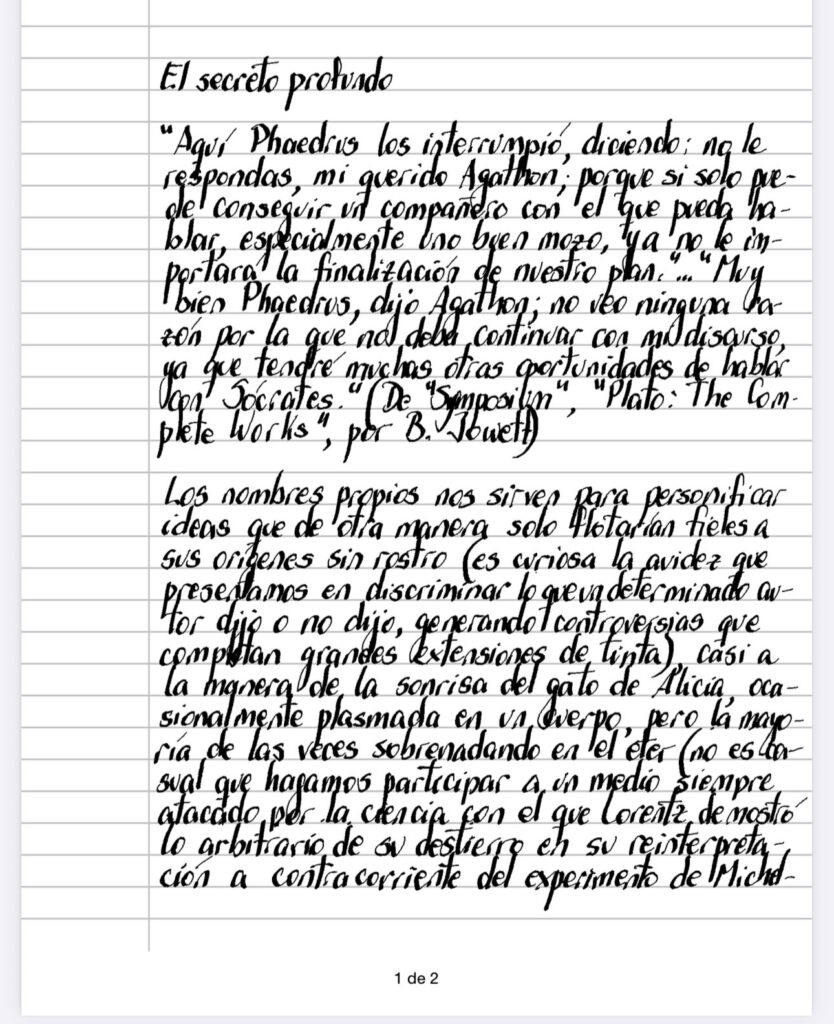 El secreto profundo
"Aquí Phaedrus los interrumpió, diciendo: no le
respondas, mi querido Agathon; porque si solo pue-
de conseguir un compañero con el que pueda ha-
blar, especialmente uno buen mozo, ya no le im-
portará la finalización de nuestro plan."..."Muy
bien Phaedrus, dijo Agathon; no veo ninguna ra-
zón por la que no deba continuar con mi discurso,
ya que tendré muchas otras oportunidades de hablar
con Sócrates." (De "Symposium", "Plato: The Com-
plete Works", por B. Jowett)
Los nombres propios nos sirven para personificar
ideas que de otra manera solo flotarían fieles a
sus orígenes sin rostro (es curiosa la avidez que
presentamos en discriminar lo que un determinado au-
tor dijo o no dijo, generando controversias que
completan grandes extensiones de tinta), casi a
la manera de la sonrisa del gato de Alicia, oca-
sionalmente plasmada en un cuerpo, pero la mayo-
ría de las veces sobrenadando en el éter (no es ca-
sual que hagamos participar a un medio siempre
atacado por la ciencia con el que Lorentz demostró
lo arbitrario de su destierro en su reinterpreta-
ción a contracorriente del experimento de Michel-
1 de 2